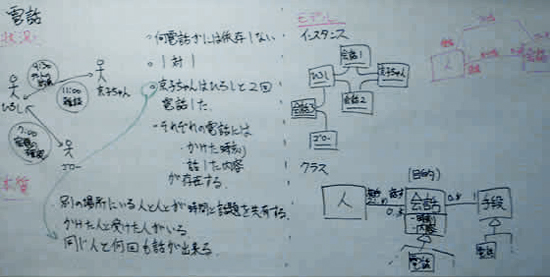 電話
状況
何電話かには依存しない
1対1
京子ちゃんはひろしと2回
電話した.
それぞれの電話には
・かけた時刻
・話した内容
が存在する.
11:00
雑談
京子ちゃん
ひろし
7:00
ゴロー
本質
別の場所にいる人と人とが時間と話題を共有する.
かけた人と受けた人がいる
同じ人と何回も話が出来る.
モデル
インスタンス
会話1
ひろし
京子ちゃん
会話2
会話3
ゴロー
クラス
(目的)
人
会話
時刻
内容
手段
電話
電話
人
会話